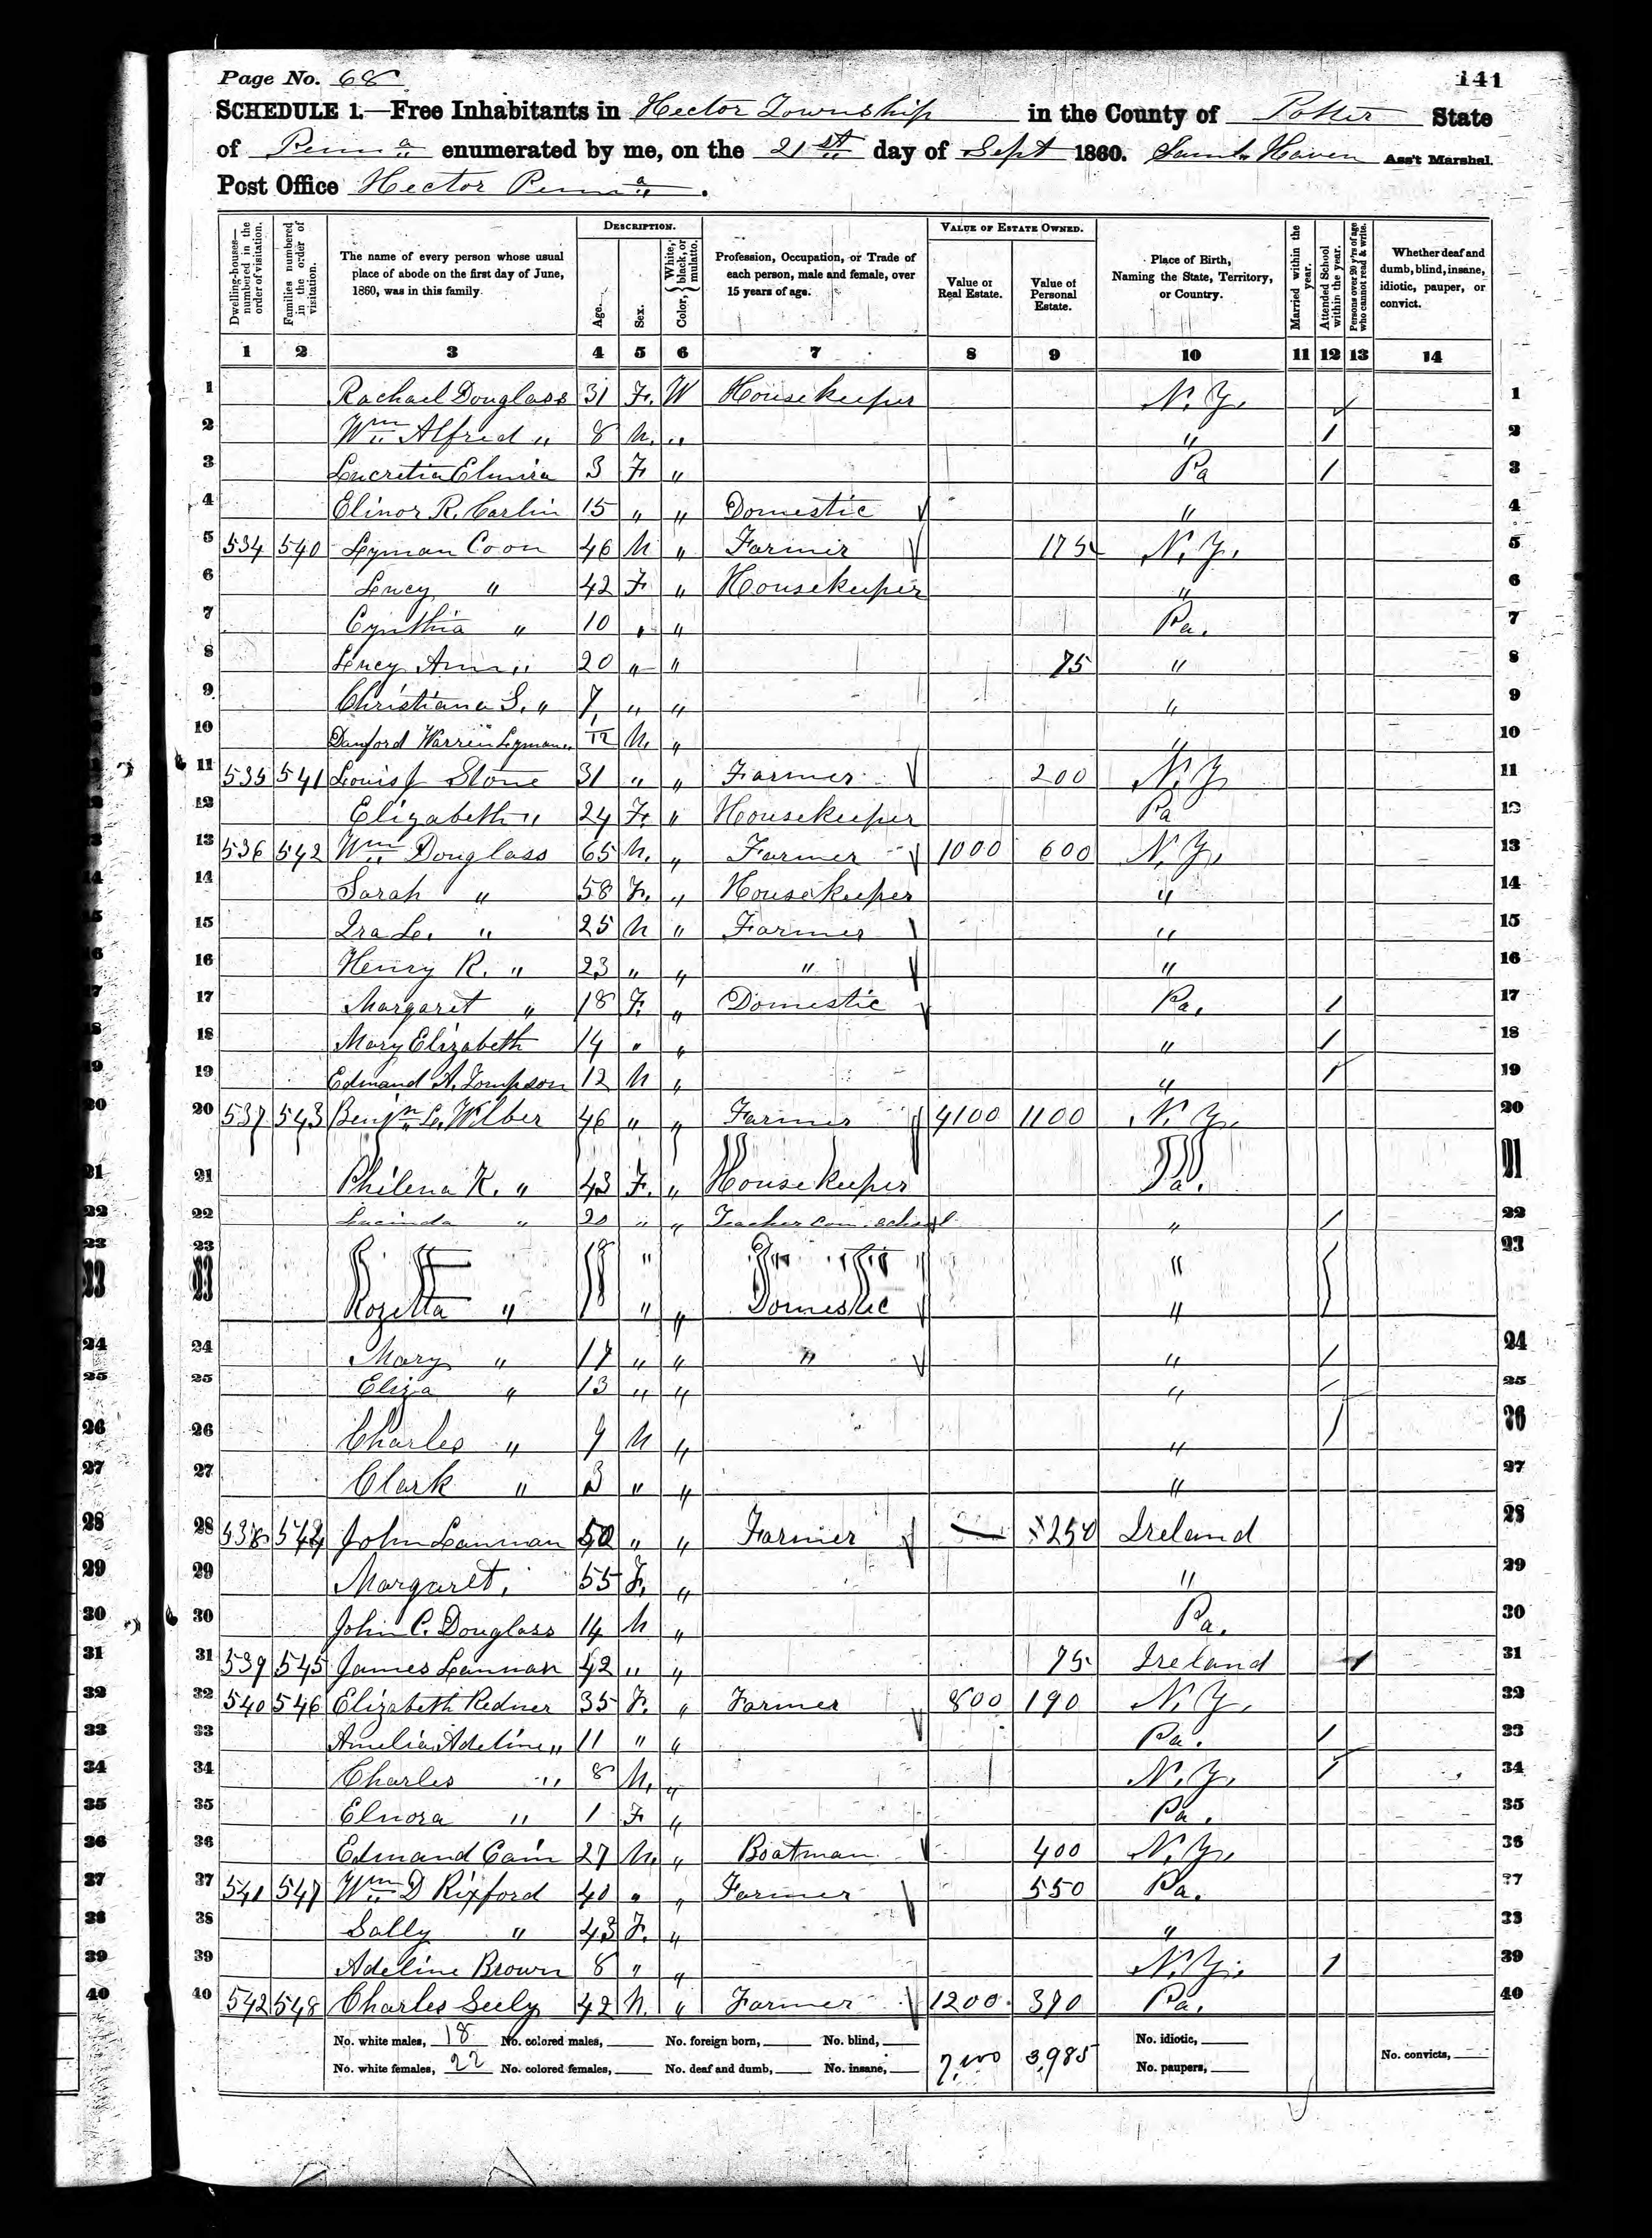 Page No. 68
141
SCHEDULE 1.—Free Inhabitants in Hector Township in the County of Potter State
of Penn a enumerated by me, on the 21st day of Sept 1860. Saml. Haven Ass't Marshal.
Post Office Hector Penna.
Dwelling-houses—numbered in the order of visitation. Families numbered in the order of visitation. The name of every person whose usual place of abode on the first day of June, 1860, was in this family. DESCRIPTION. Age. Sex. Color, {White, black, or mulatto. Profession, Occupation, or Trade of each person, male and female, over 15 years of age. VALUE OF ESTATE OWNED. Value of Real Estate. Value of Personal Estate. Place of Birth, Naming the State, Territory, or Country. Married within the year. Attended School within the year. Persons over 20 y'rs of age who cannot read & write. Whether deaf and dumb, blind, insane, idiotic, pauper, or convict.
1 2 3 4 5 6 7 8 9 10 11 12 13 14
1 Rachael Douglass 31 F. W Housekeeper N.Y. 1
2 Wm Alfred " 8 M. " " / 2
3 Lucretia Elmira 3 F " Pa / 3
4 Elinor R. Carlin 15 " " Domestic " 4
5 534 540 Lyman Coon 46 M " Farmer 175 N.Y. 5
6 Lucy " 42 F. " Housekeeper " 6
7 Cynthia " 10 " " Pa. 7
8 Lucy Ann " 20 " " 75 " 8
9 Christiana S. " 7 " " " 9
10 Danford Warren Lyman " 1/12 M. " " 10
11 535 541 Louis J Stone 31 " " Farmer 200 N.Y 11
12 Elizabeth " 24 F. " Housekeeper Pa 12
13 536 542 Wm Douglass 65 M. " Farmer 1000 600 N.Y. 13
14 Sarah " 58 F. " Housekeeper " 14
15 Ira L. " 25 M " Farmer " 15
16 Henry R. " 23 " " " " 16
17 Margaret " 18 F. " Domestic Pa. / 17
18 Mary Elizabeth 14 " " " / 18
19 Edmand A. Tompson 12 M " " / 19
20 537 543 Benjn L. Wilber 46 " " Farmer 4100 1100 N.Y. 20
21 Philena K. " 43 F. " Housekeeper Pa. 21
22 Lucinda " 20 " " Teacher Com. School " / 22
23 Rozetta " 18 " " Domestic " / 23
24 Mary " 17 " " " " / 24
25 Eliza " 13 " " " / 25
26 Charles " 9 M " " / 26
27 Clark " 3 " " " 27
28 538 544 John Lannan 50 " " Farmer 250 Ireland 28
29 Margaret, 55 F. " " 29
30 John C. Douglass 14 M " Pa. 30
31 539 545 James Lannan 42 " " 75 Ireland / 31
32 540 546 Elizabeth Redner 35 F. " Farmer 800 190 N.Y. 32
33 Amelia Adeline " 11 " " Pa. / 33
34 Charles " 8 M. " N.Y. / 34
35 Elnora " 1 F " Pa. 35
36 Edmand Cain 27 M. " Boatman 400 N.Y. 36
37 541 547 Wm D Rixford 40 " " Farmer 550 Pa. 37
38 Sally " 43 F. " " 38
39 Adeline Brown 8 " " N.Y. / 39
40 542 548 Charles Seely 42 M. " Farmer 1200 390 Pa. 40
No. white males, 18 No. colored males, No. foreign born, No. blind, No. idiotic,
No. white females, 22 No. colored females, No. deaf and dumb, No. insane, 3,985 No. paupers, No. convicts,